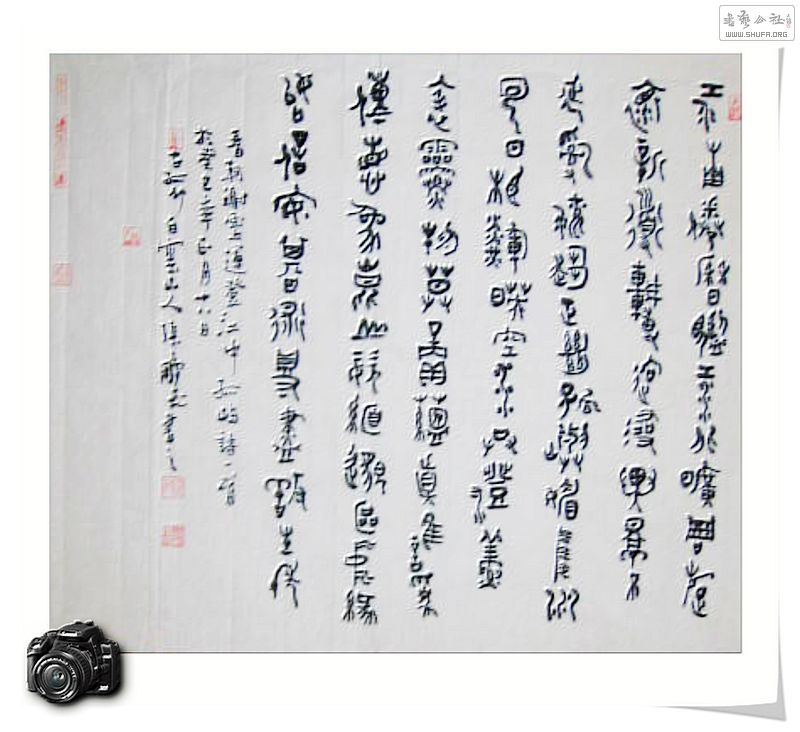 書藝公社
WWW.SHUFA.ORG
江南倦歷覽江北曠周旋
懷新道轉迥尋異景不
延亂流趨正絕孤嶼媚中川
雲日相輝映空水共澄鮮
表靈物莫賞蘊真誰為
傳想象崑山姿緬邈區中緣
始信安期術得盡養生年
晋朝謝靈運登江中孤嶼詩一首
於癸巳年正月十六日
白雲山人書之